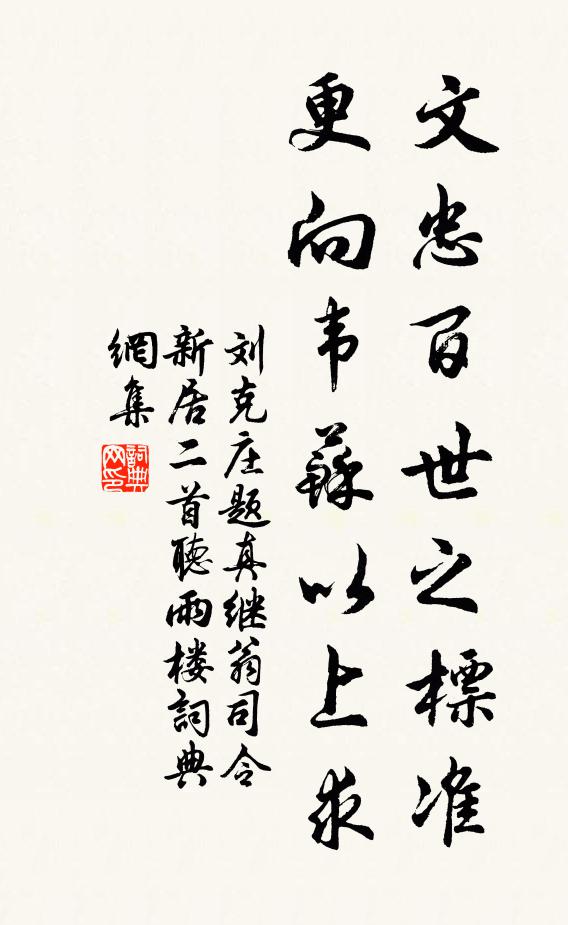 文忠百世之標准
更向韦蘇以上求
刘克庄题真继翁司令
新居二首聽雨楼詞典
網集
詞典网印